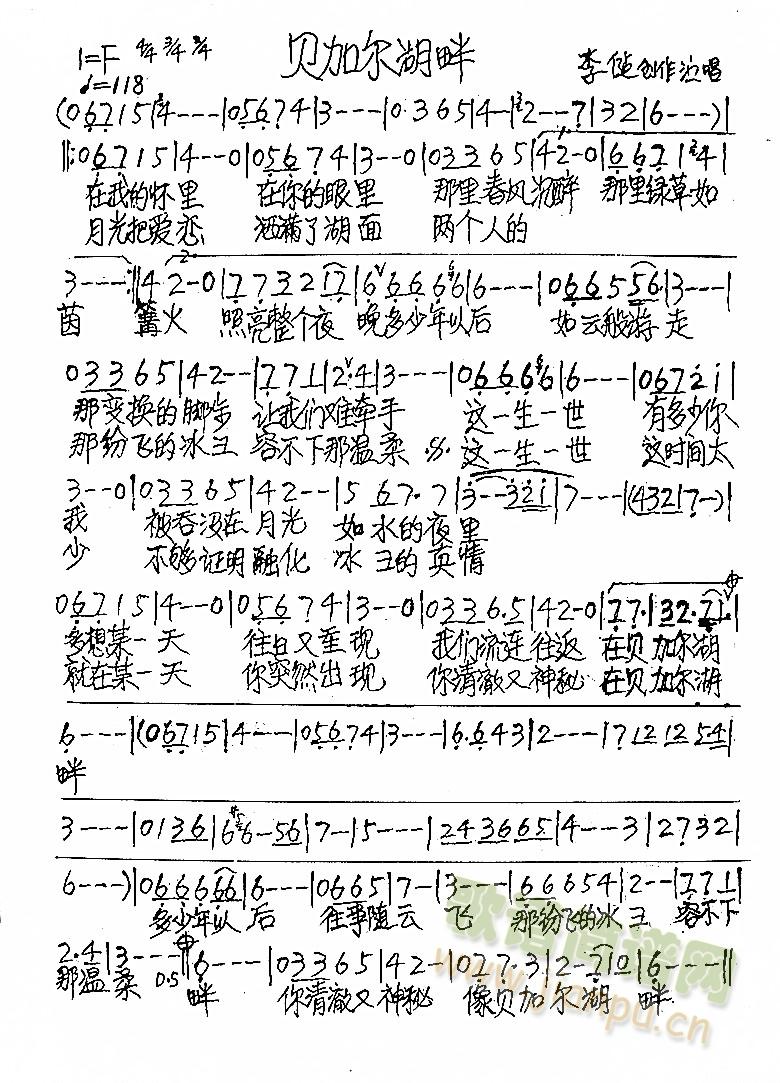 1=F 4/4 3/4 2/4 贝加尔湖畔 李健创作演唱
♩=118
(06715|4---|05674|3---|0·365|4-|2--7|32|6---)|
‖:06715|4--0|05674|3--0|03365|42-0|6671 24|
在我的怀里 在你的眼里 那里春风沉醉 那里绿草如
月光把爱恋 洒满了湖面 两个人的
3---:‖42-0|773217|66666|6---|066556·|3---|
茵 篝火 照亮整个夜晚 多少年以后 如云般游走
03365|42--|771|2·4|3---|06666|6---|06721|
那变换的脚步 让我们难牵手 这一生一世 有多少你
那纷飞的冰雪 容不下那温柔 𝄋 这一生一世 这时间太
3--0|03365|42--|567·7|3--321|7---|(432|7-)|
我 被吞没在月光 如水的夜里
少 不够证明融化 冰雪的真情
06715|4--0|05674|3--0|0336·5|42-0|77·|32·71·|
多想某一天 往日又重现 我们流连往返 在贝加尔湖
就在某一天 你突然出现 你清澈又神秘 在贝加尔湖
6---|(06715|4---|05674|3---|6·643|2---|712 12 54|
畔
3---|0136|66-56|7--|5---|243665|4--3|2732|
6---)|066666|6---|0665|7-|3---|66654|2--|771|
多少年以后 往事随云飞 那纷飞的冰雪 容不下
2·4|3---‖6---|03365|42-|027·3|2-710|6---‖
那温柔 D.S 畔 你清澈又神秘 像贝加尔湖畔
歌谱简谱网
www.jianpu.cn